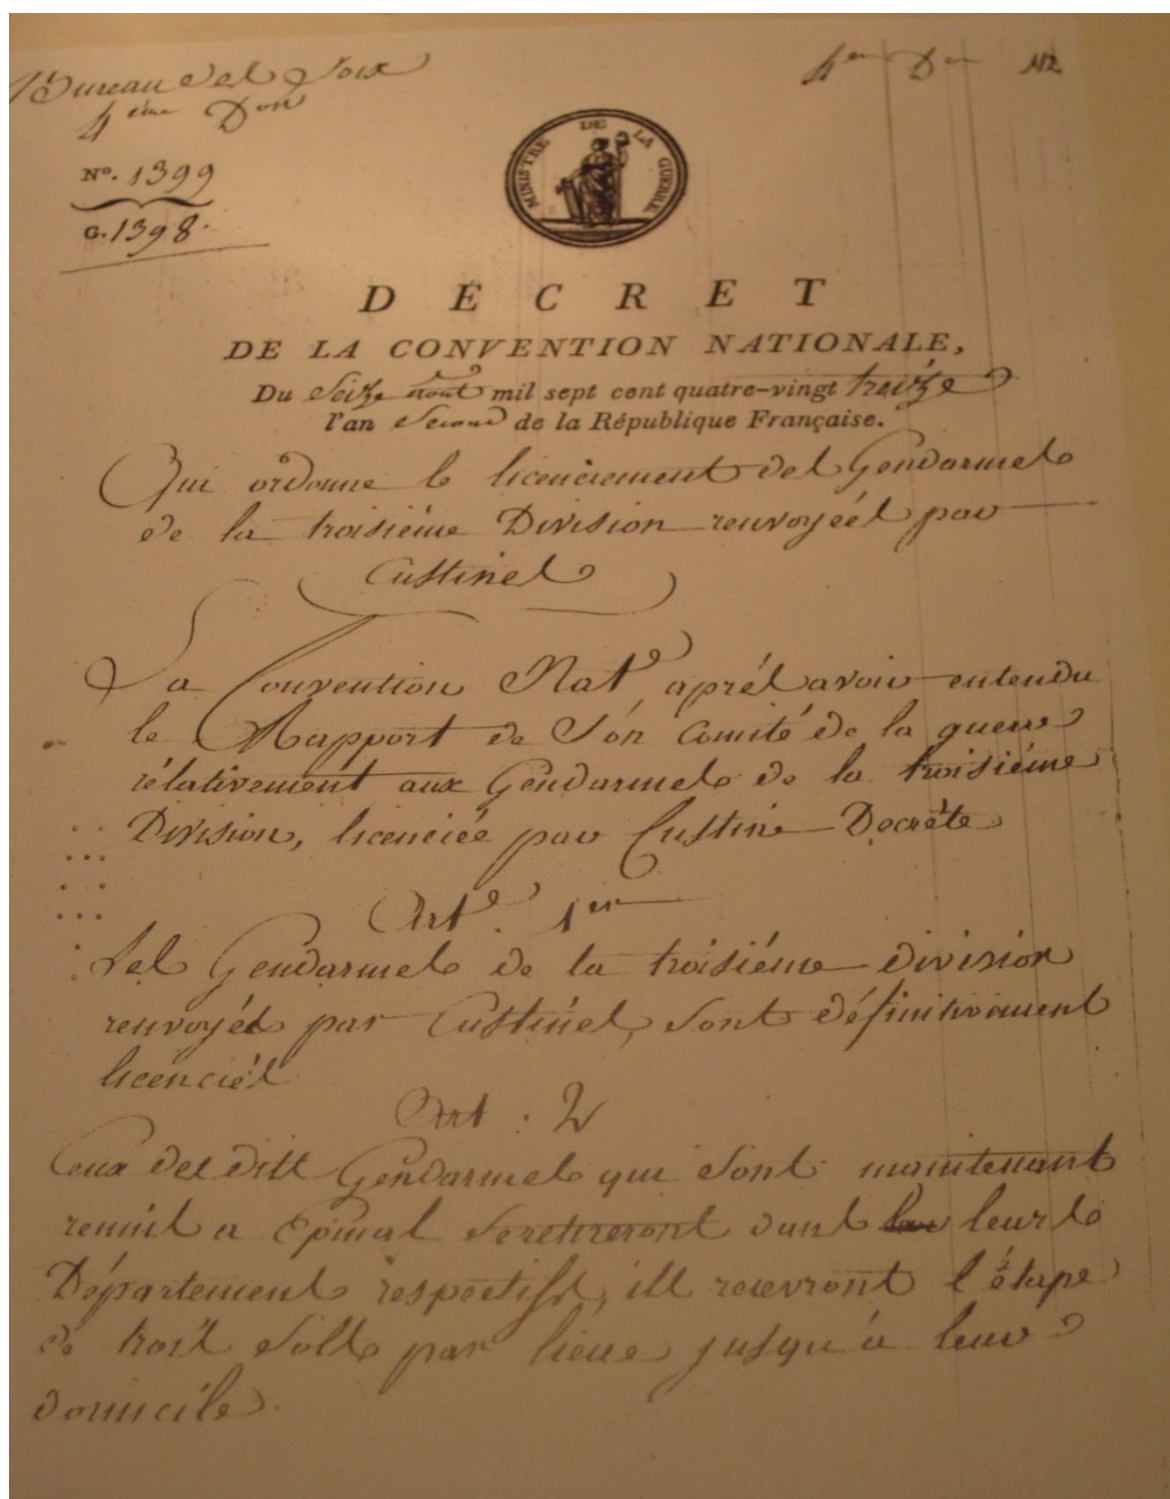 Bureau des Loix
4ème Don
4em Don 112
No. 1399
G. 1398.
MINISTRE DE LA GUERRE
DÉCRET
DE LA CONVENTION NATIONALE,
Du Seize aout mil sept cent quatre-vingt treize
l'an Second de la République Française.
Qui ordonne le licenciement des Gendarmes
de la troisiéme Division renvoyéés par
Custines
La Convention Nat.e aprés avoir entendu
le Rapport de Son Comité de la guerre
rélativement aux Gendarmes de la troisiéme
Division, licenciée par Custine Decrète
Art.e 1er
Les Gendarmes de la troisiéme division
renvoyés par Custines, Sont définitivement
licenciés
Art : 2
Ceux des dits Gendarmes qui Sont maintenant
reunis a Epinal Seretireront dans leurs
Département respectifs, ils recevront l'étape
de trois Sols par lieue jusqu'à leur
domicile.